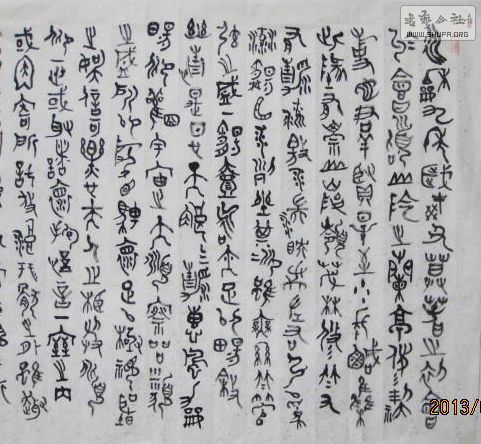 永和九年歲在癸丑莫春之初會
于會稽山陰之蘭亭修禊
事也群賢畢至少長咸集
此地有崇山峻領茂林修竹又
有清流激湍映帶左右引以為
流觴曲水列坐其次雖無絲竹管
弦之盛一觴一詠亦足以暢敘
幽情是日也天朗氣清惠風和
暢仰觀宇宙之大俯察品類
之盛所以遊目騁懷足以極視聽
之娛信可樂也夫人之相與俯
仰一世或取諸懷抱悟言一室之內
或因寄所託放浪形骸之外雖趣
WWW.SHUFA.ORG
2013/0